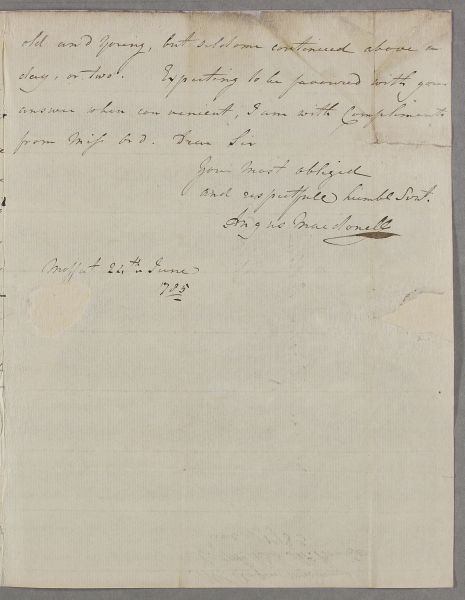 old and young, but seldome continued above a
day, or two. Expecting to be favoured with your
answer when convenient, I am with Compliments
from Miss Ord. Dear Sir
Your most obliged
and respectfull humbl Svnt.
Angus Macdonell
Moffat 24th June
1785